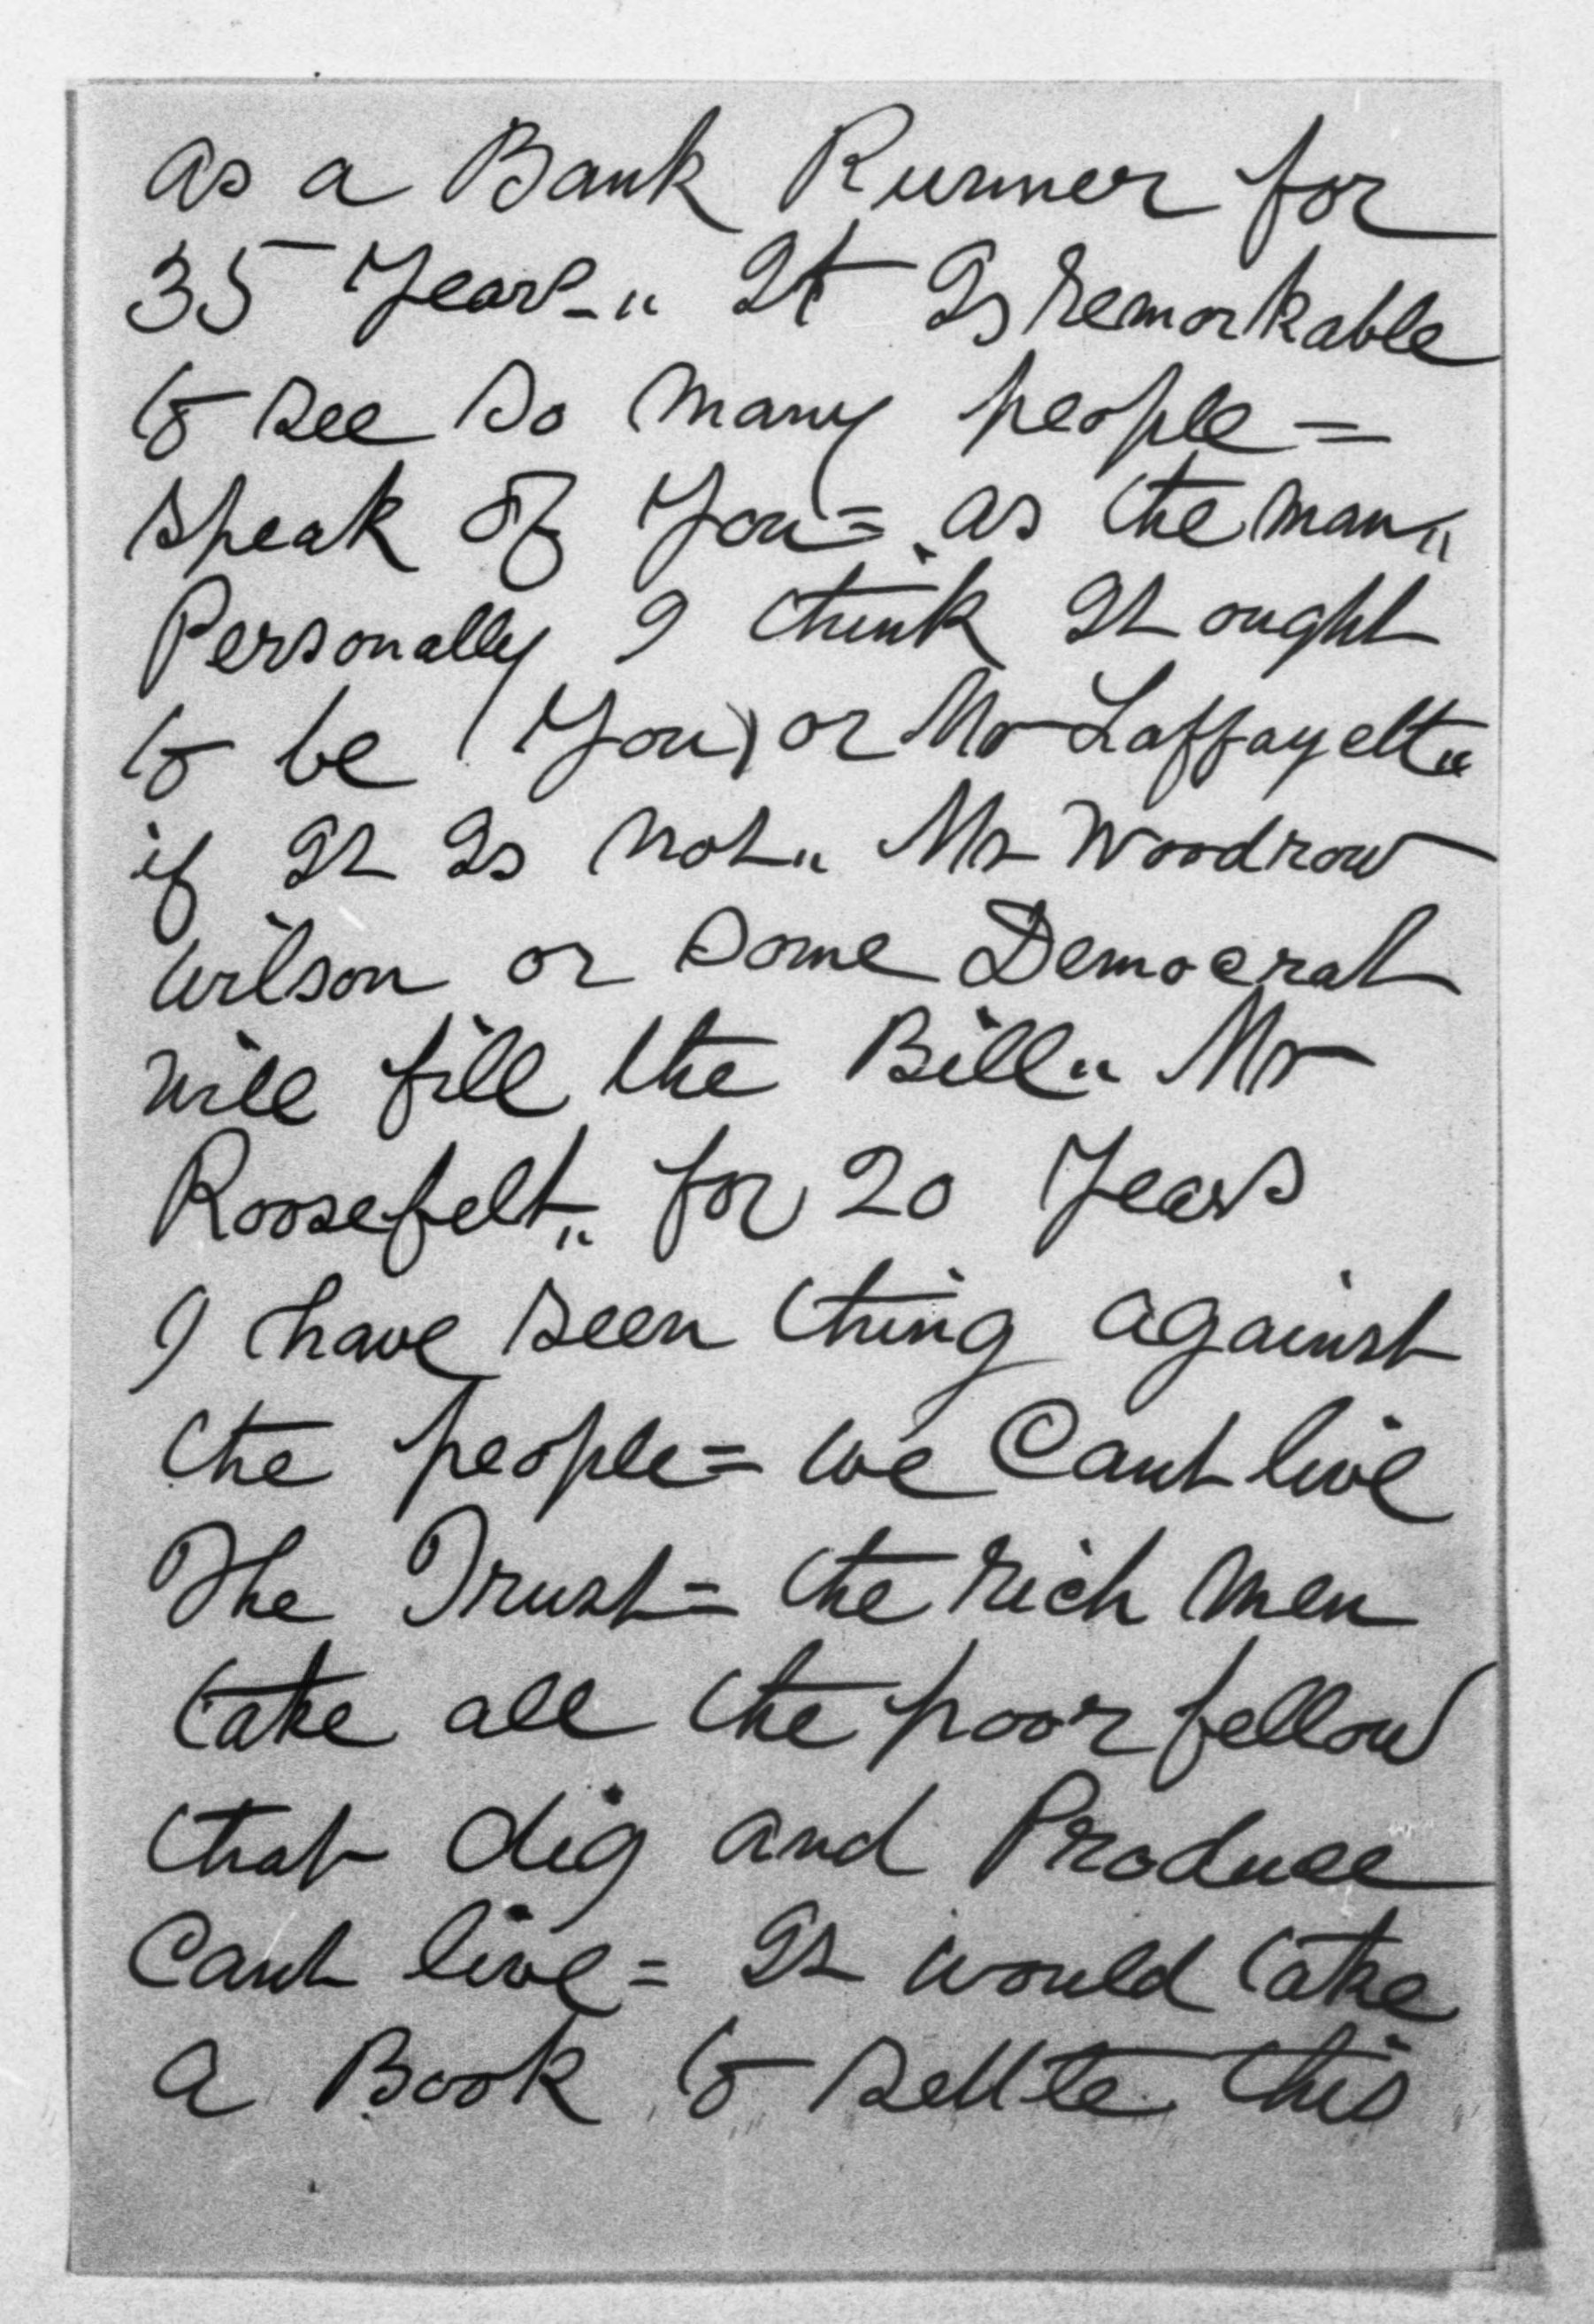 as a Bank Runner for
35 Years - " It Is remarkable
to see so many people =
speak of You = as the man "
Personally I think It ought
to be (You) or Mr Laffayett "
if It Is not " Mr Woodrow
wilson or some Democrat
will fill the Bill " Mr
Roosefelt " for 20 Years
I have seen thing against
the people = we Cant live
The Trust = the rich men
take all the poor fellow
that dig and Produce
Cant live = It would take
a Book to sellte this